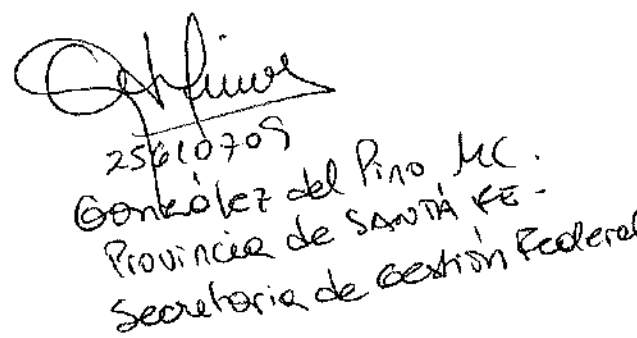 25610709
González del Pino MC.
Provincia de SANTA FE -
Secretaria de Gestión Federal